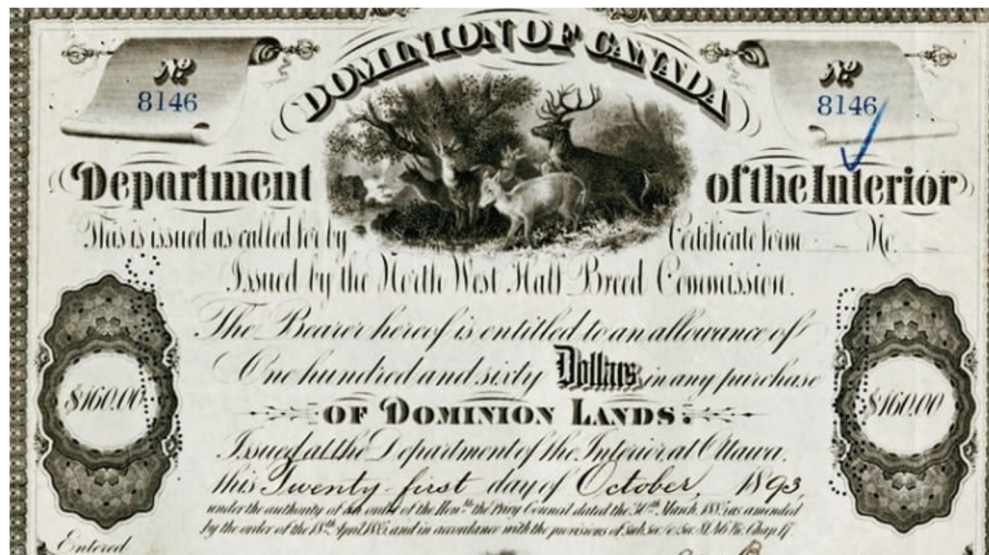 DOMINION OF CANADA
No 8146
No 8146
Department of the Interior
This is issued as called for by Certificate form No.
Issued by the North West Half Breed Commission.
The Bearer hereof is entitled to an allowance of
One hundred and sixty Dollars in any purchase
$160.00
$160.00
OF DOMINION LANDS.
Issued at the Department of the Interior at Ottawa,
this Twenty-first day of October, 1893,
under the authority of an order of the Honble the Privy Council dated the 30th March, 1885, as amended
by the order of the 18th April, 1885, and in accordance with the provisions of Sub Sec
Entered